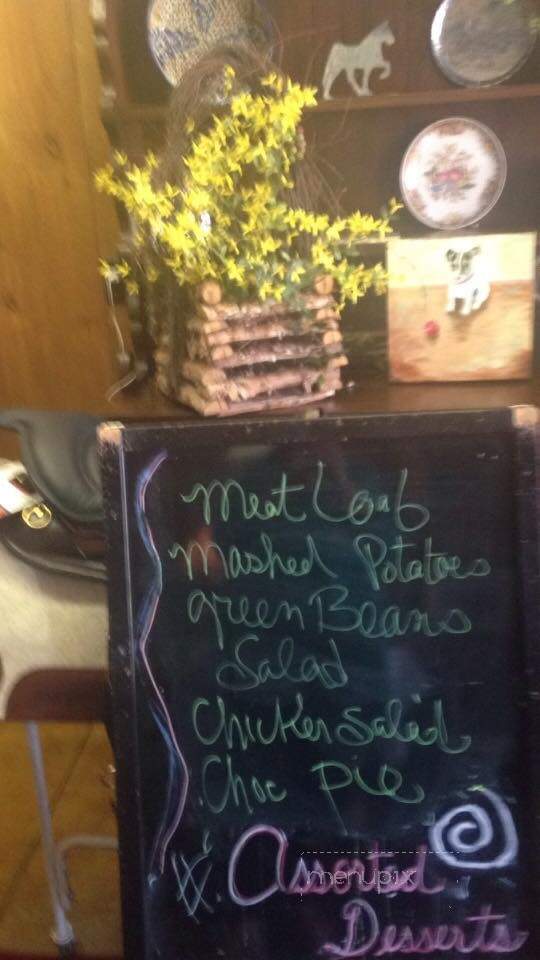 Meat Loaf
Mashed Potatoes
green Beans
Salad
Chicken Salad
Choc Pie
Assorted
menupix
Desserts